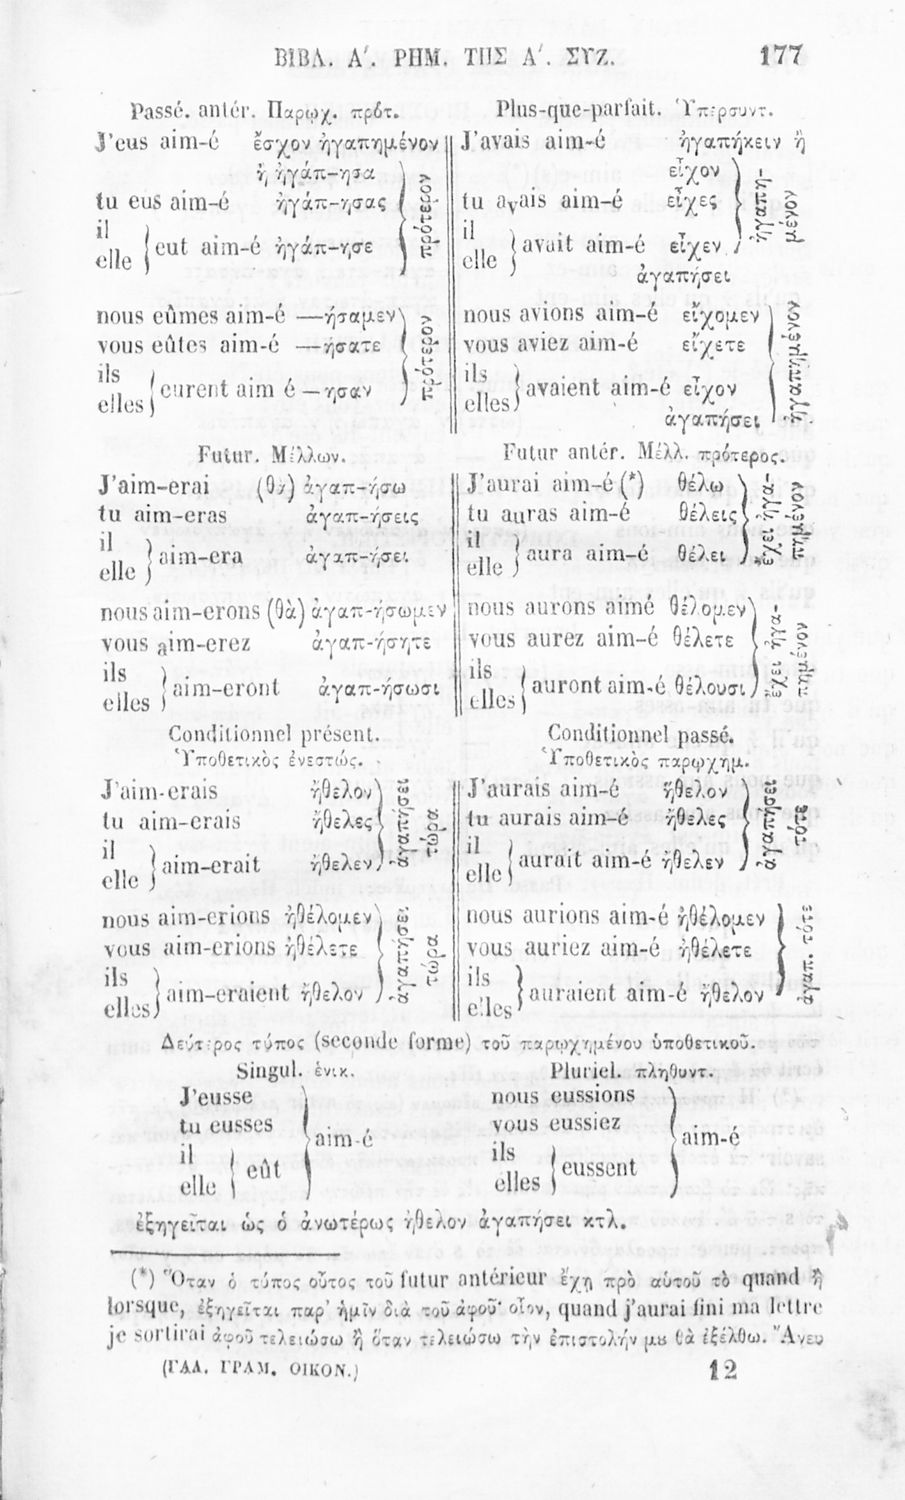 ΒΙΒΛ. Α΄. ΡΗΜ. ΤΗΣ Α΄. ΣΥΖ. 177
Passé. antér. Παρῳχ. πρότ.
J'eus aim-é ἔσχον ἠγαπημένον
ἢ ἠγάπ-ησα
tu eus aim-é ἠγάπ-ησας
il
elle } eut aim-é ἠγάπ-ησε
πρότερον
nous eûmes aim-é —ήσαμεν
vous eûtes aim-é —ήσατε
ils
elles } eurent aim é —ησαν
πρότερον
Plus-que-parfait. Ὑπερσυντ.
J'avais aim-é ἠγαπήκειν ἢ
εἶχον
tu avais aim-é εἶχες
il
elle } avait aim-é εἶχεν
ἠγαπη-
μένον
ἀγαπήσει
nous avions aim-é εἴχομεν
vous aviez aim-é εἴχετε
ils
elles } avaient aim-é εἶχον
ἠγαπημένον
ἀγαπήσει
Futur. Μέλλων.
J'aim-erai (θὰ) ἀγαπ-ήσω
tu aim-eras ἀγαπ-ήσεις
il
elle } aim-era ἀγαπ-ήσει
nous aim-erons (θὰ) ἀγαπ-ήσωμεν
vous aim-erez ἀγαπ-ήσητε
ils
elles } aim-eront ἀγαπ-ήσωσι
Futur antér. Μέλλ. πρότερος.
J'aurai aim-é (*) θέλω
tu auras aim-é θέλεις
il
elle } aura aim-é θέλει
ἔχει ἠγα-
πημένον
nous aurons aimé θέλομεν
vous aurez aim-é θέλετε
ils
elles } auront aim-é θέλουσι
ἔχει ἠγα-
πημένον
Conditionnel présent.
Ὑποθετικὸς ἐνεστώς.
J'aim-erais ἤθελον
tu aim-erais ἤθελες
il
elle } aim-erait ἤθελεν
ἀγαπήσει
τώρα
nous aim-erions ἠθέλομεν
vous aim-erions ἠθέλετε
ils
elles } aim-eraient ἤθελον
ἀγαπήσει
τώρα
Conditionnel passé.
Ὑποθετικὸς παρῳχημ.
J'aurais aim-é ἤθελον
tu aurais aim-é ἤθελες
il
elle } aurait aim-é ἤθελεν
ἀγαπήσει
τότε
nous aurions aim-é ἠθέλομεν
vous auriez aim-é ἠθέλετε
ils
elles } auraient aim-é ἤθελον
ἀγαπ. τότε
Δεύτερος τύπος (seconde forme) τοῦ παρῳχημένου ὑποθετικοῦ.
Singul. ἑνικ.
J'eusse
tu eusses
il
elle } eût
aim-é
Pluriel. πληθυντ.
nous eussions
vous eussiez
ils
elles } eussent
aim-é
ἐξηγεῖται ὡς ὁ ἀνωτέρως ἤθελον ἀγαπήσει κτλ.
(*) Ὅταν ὁ τύπος οὗτος τοῦ futur antérieur ἔχῃ πρὸ αὑτοῦ τὸ quand ἢ
lorsque, ἐξηγεῖται παρ' ἡμῖν διὰ τοῦ ἀφοῦ· οἷον, quand j'aurai fini ma lettre
je sortirai ἀφοῦ τελειώσω ἢ ὅταν τελειώσω τὴν ἐπιστολήν μȣ θὰ ἐξέλθω. Ἄνευ
(ΓΑΛ. ΓΡΑΜ. ΟΙΚΟΝ.) 12